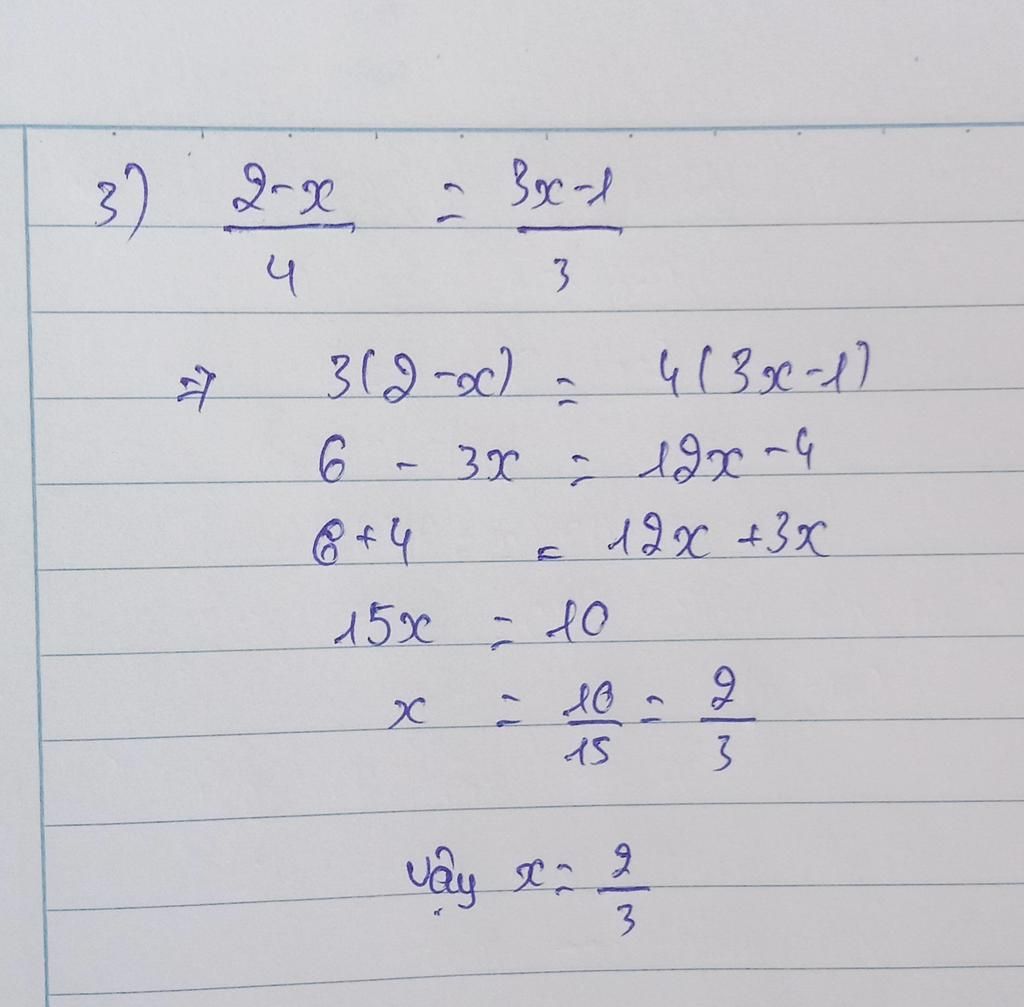 3) (2-x)/4 = (3x-1)/3
=> 3(2-x) = 4(3x-1)
6 - 3x = 12x-4
6+4 = 12x +3x
15x = 10
x = 10/15 = 2/3
vậy x = 2/3